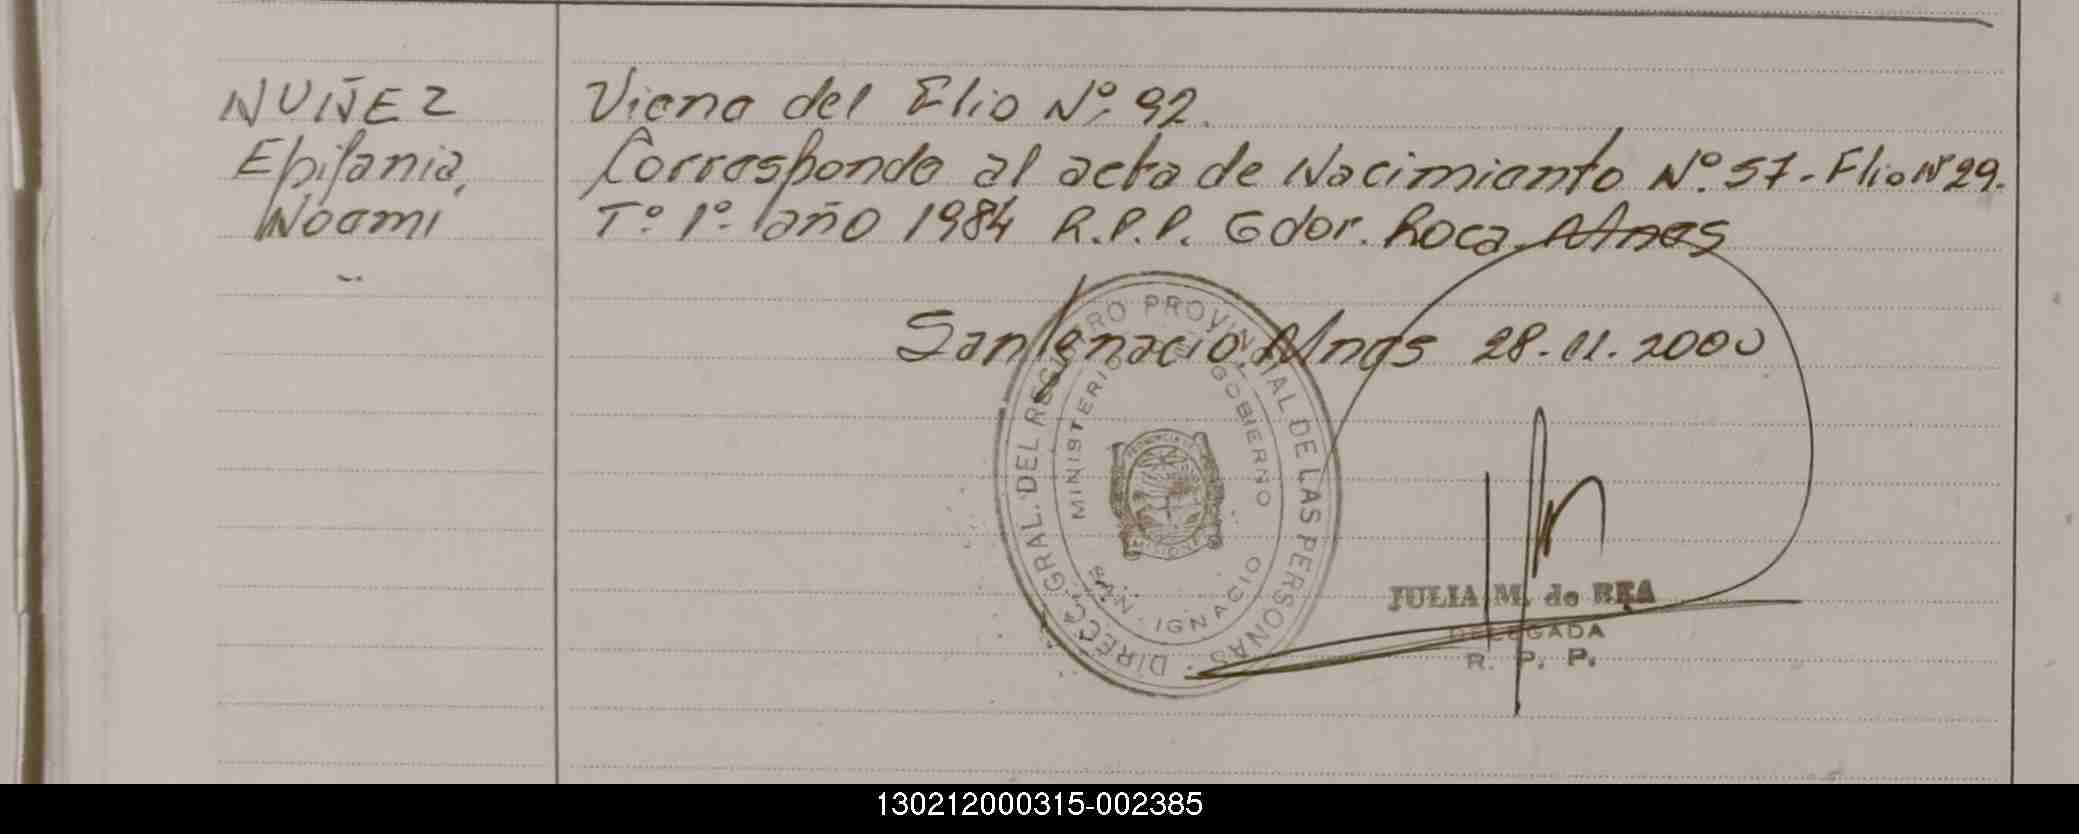 NUÑEZ
Epifania,
Noemi
Viene del Flio Nº: 92.
Corresponde al acta de Nacimiento Nº: 57 - Flio Nº 29.
Tº: 1º: año 1984 R.P.P. Gdor. Roca, Mnes
San Ignacio, Mnes 28.11.2000
DIRECC. GRAL. DEL REGISTRO PROVINCIAL DE LAS PERSONAS
MINISTERIO GOBIERNO
SAN IGNACIO
JULIA M. de REA
DELEGADA
R. P. P.
130212000315-002385